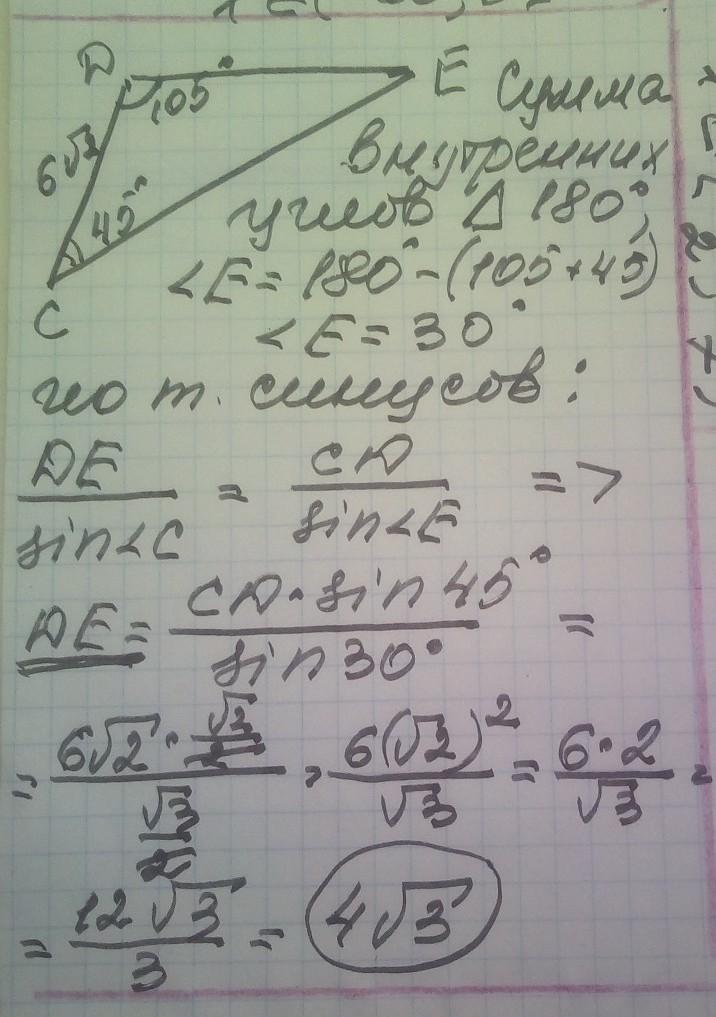 D 105° E Сумма
6√2 внутренних
45° углов Δ 180°,
<E = 180° - (105+45)
C <E = 30°
по т. синусов:
DE/sin<C = CD/sin<E =>
DE = CD·sin45°/sin30° =
= 6√2 · √2/2 / √3/2 = 6(√2)²/√3 = 6·2/√3 =
= 12√3/3 = 4√3